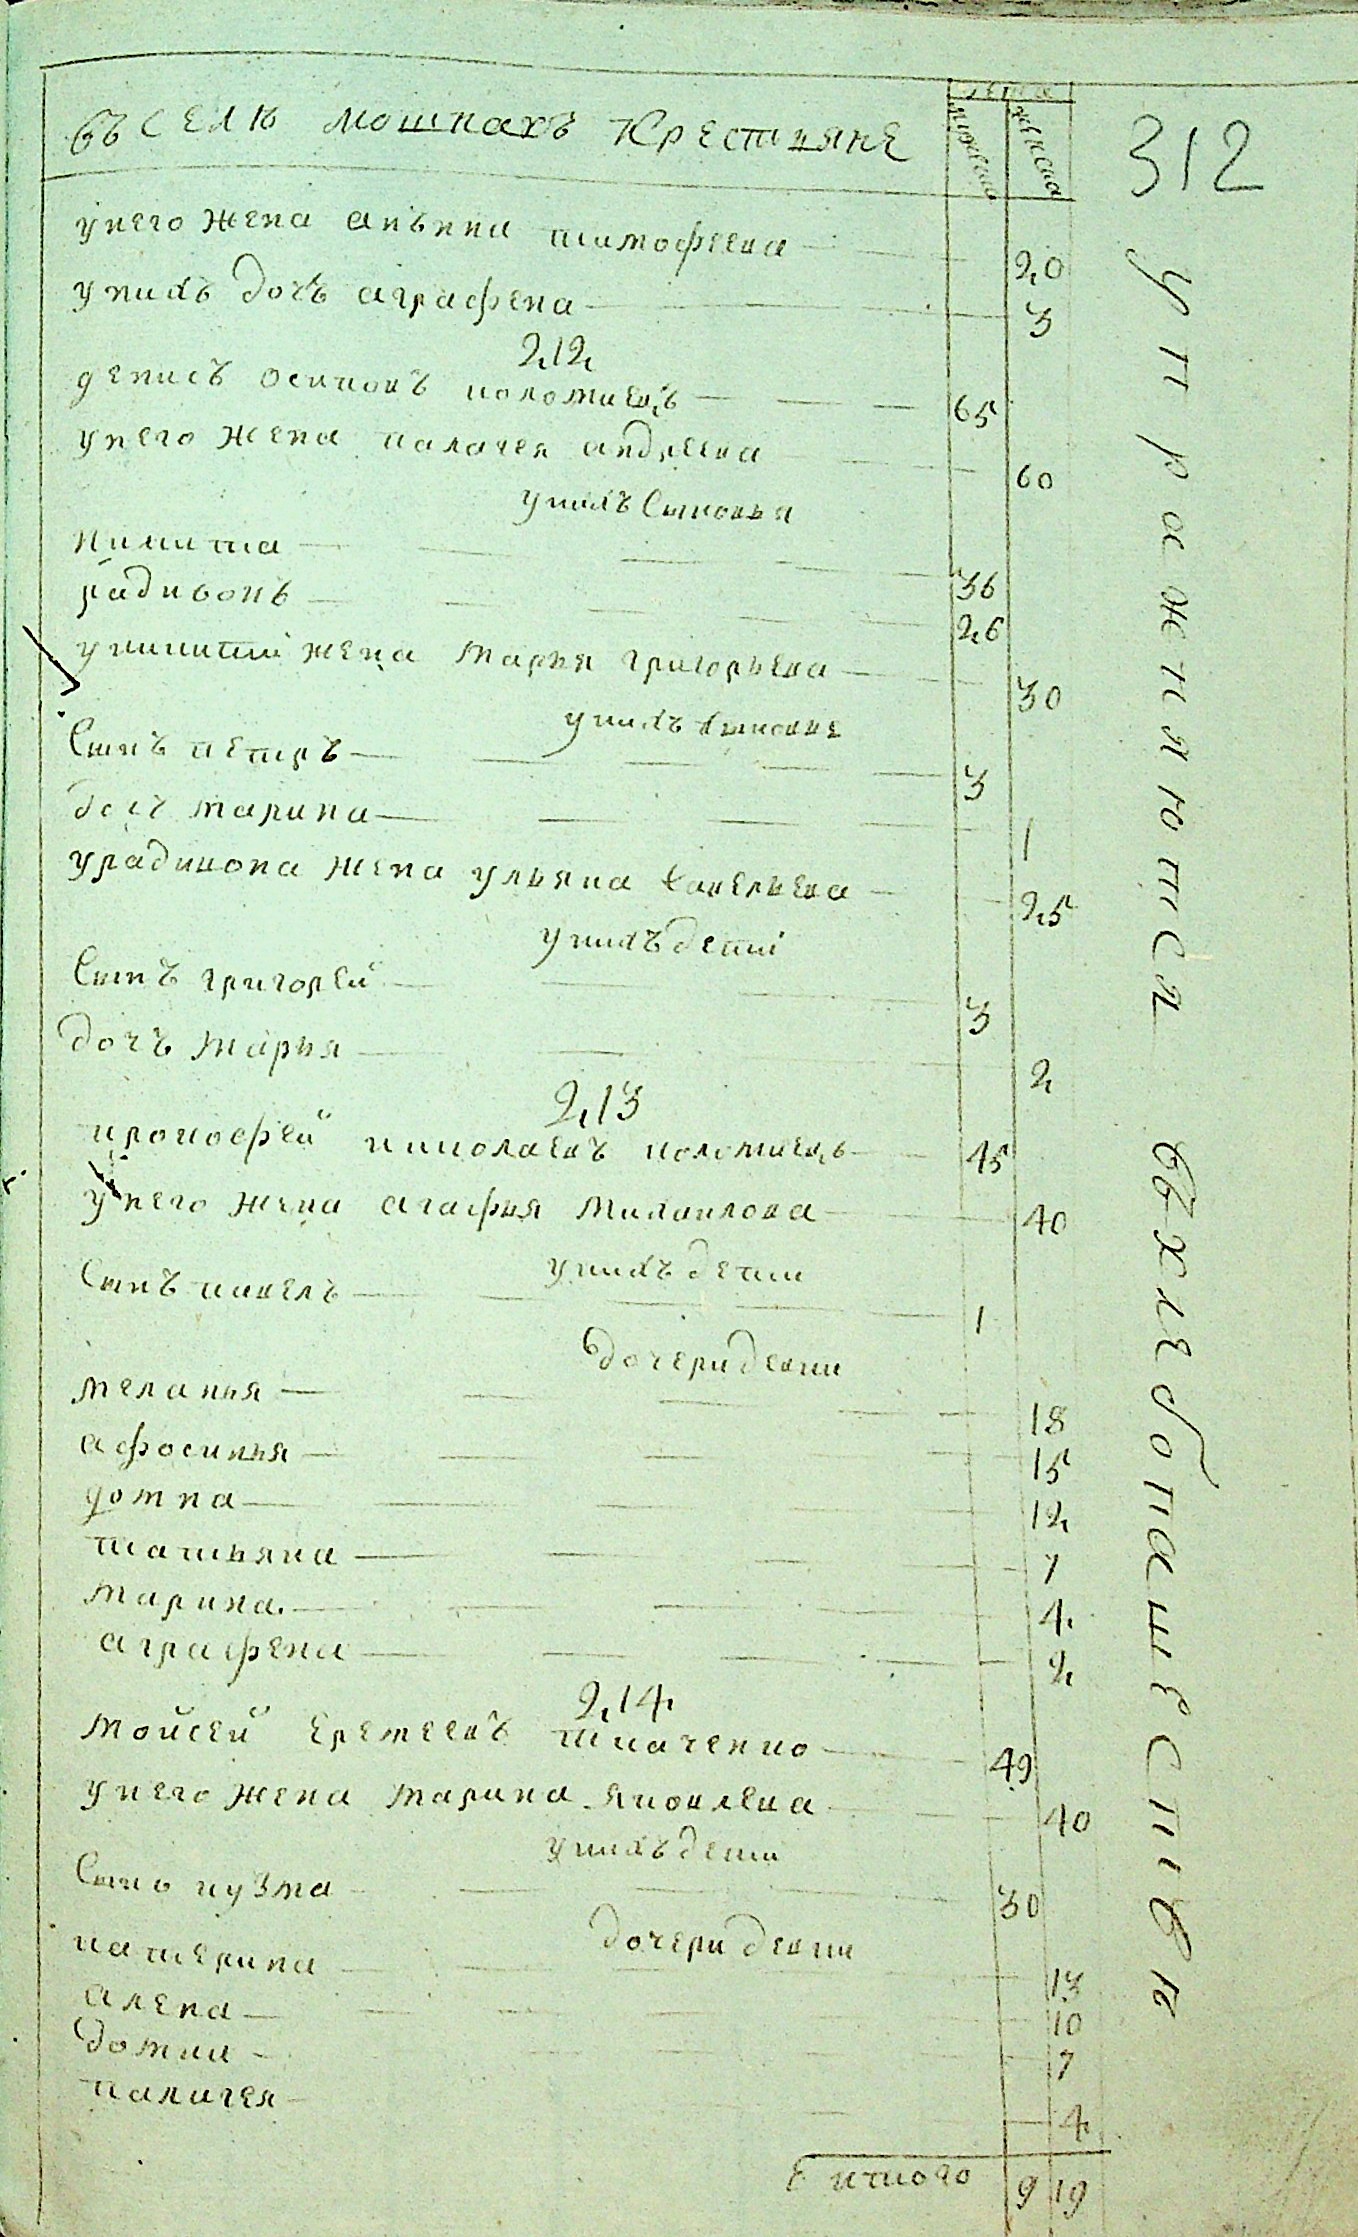 лета
мужеска женска
312
въ селѣ мошнахъ крестьяне
у него жена анънна тимофеева 20
у нихъ дочъ аграфена 3
212
денисъ осиповъ коломиецъ 65
у него жена палагея андреева 60
у нихъ сыновья
никита 36
радивонъ 26
у никиты жена марья григорьева 30
у нихъ
сынъ петръ 3
дочъ марина 1
у радивона жена ульяна савельева 25
у нихъ дети
сынъ григорей 3
дочъ марья 2
213
прокофей николаевъ коломиецъ 45
у него жена агафья михаилова 40
у нихъ дети
сынъ павелъ 1
дочери девки
меланья 18
афосинья 15
домна 12
татьяна 7
марина 4
аграфена 2
214
мойсей еремеевъ ткаченко 49
у него жена марина яковлева 40
у нихъ дети
сынъ кузма 30
дочери девки
катерина 13
алена 10
домна 7
палагея 4
итого 9 19
упражняются въ хлебопашестве